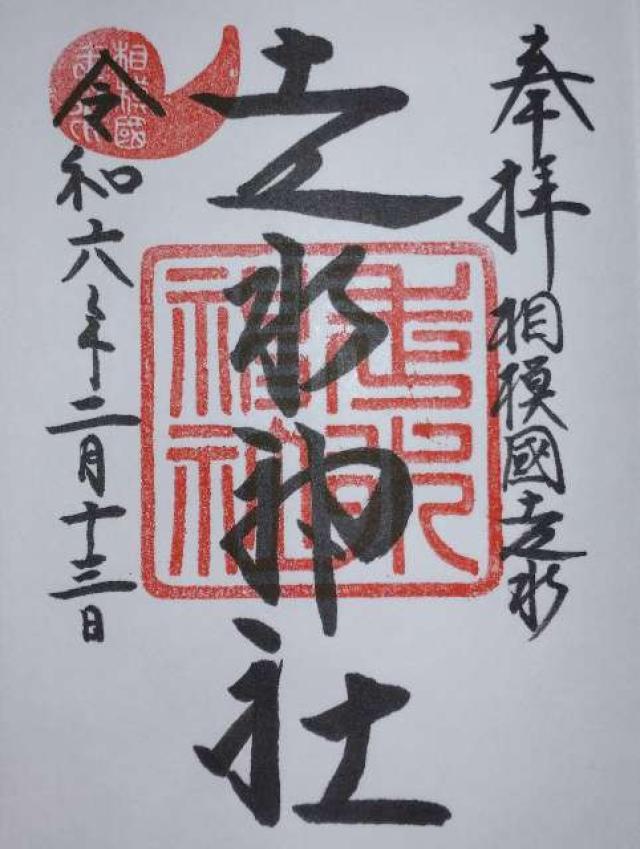 奉拝 相模國走水
走水神社
令和六年二月十三日
走水
神社
相模國